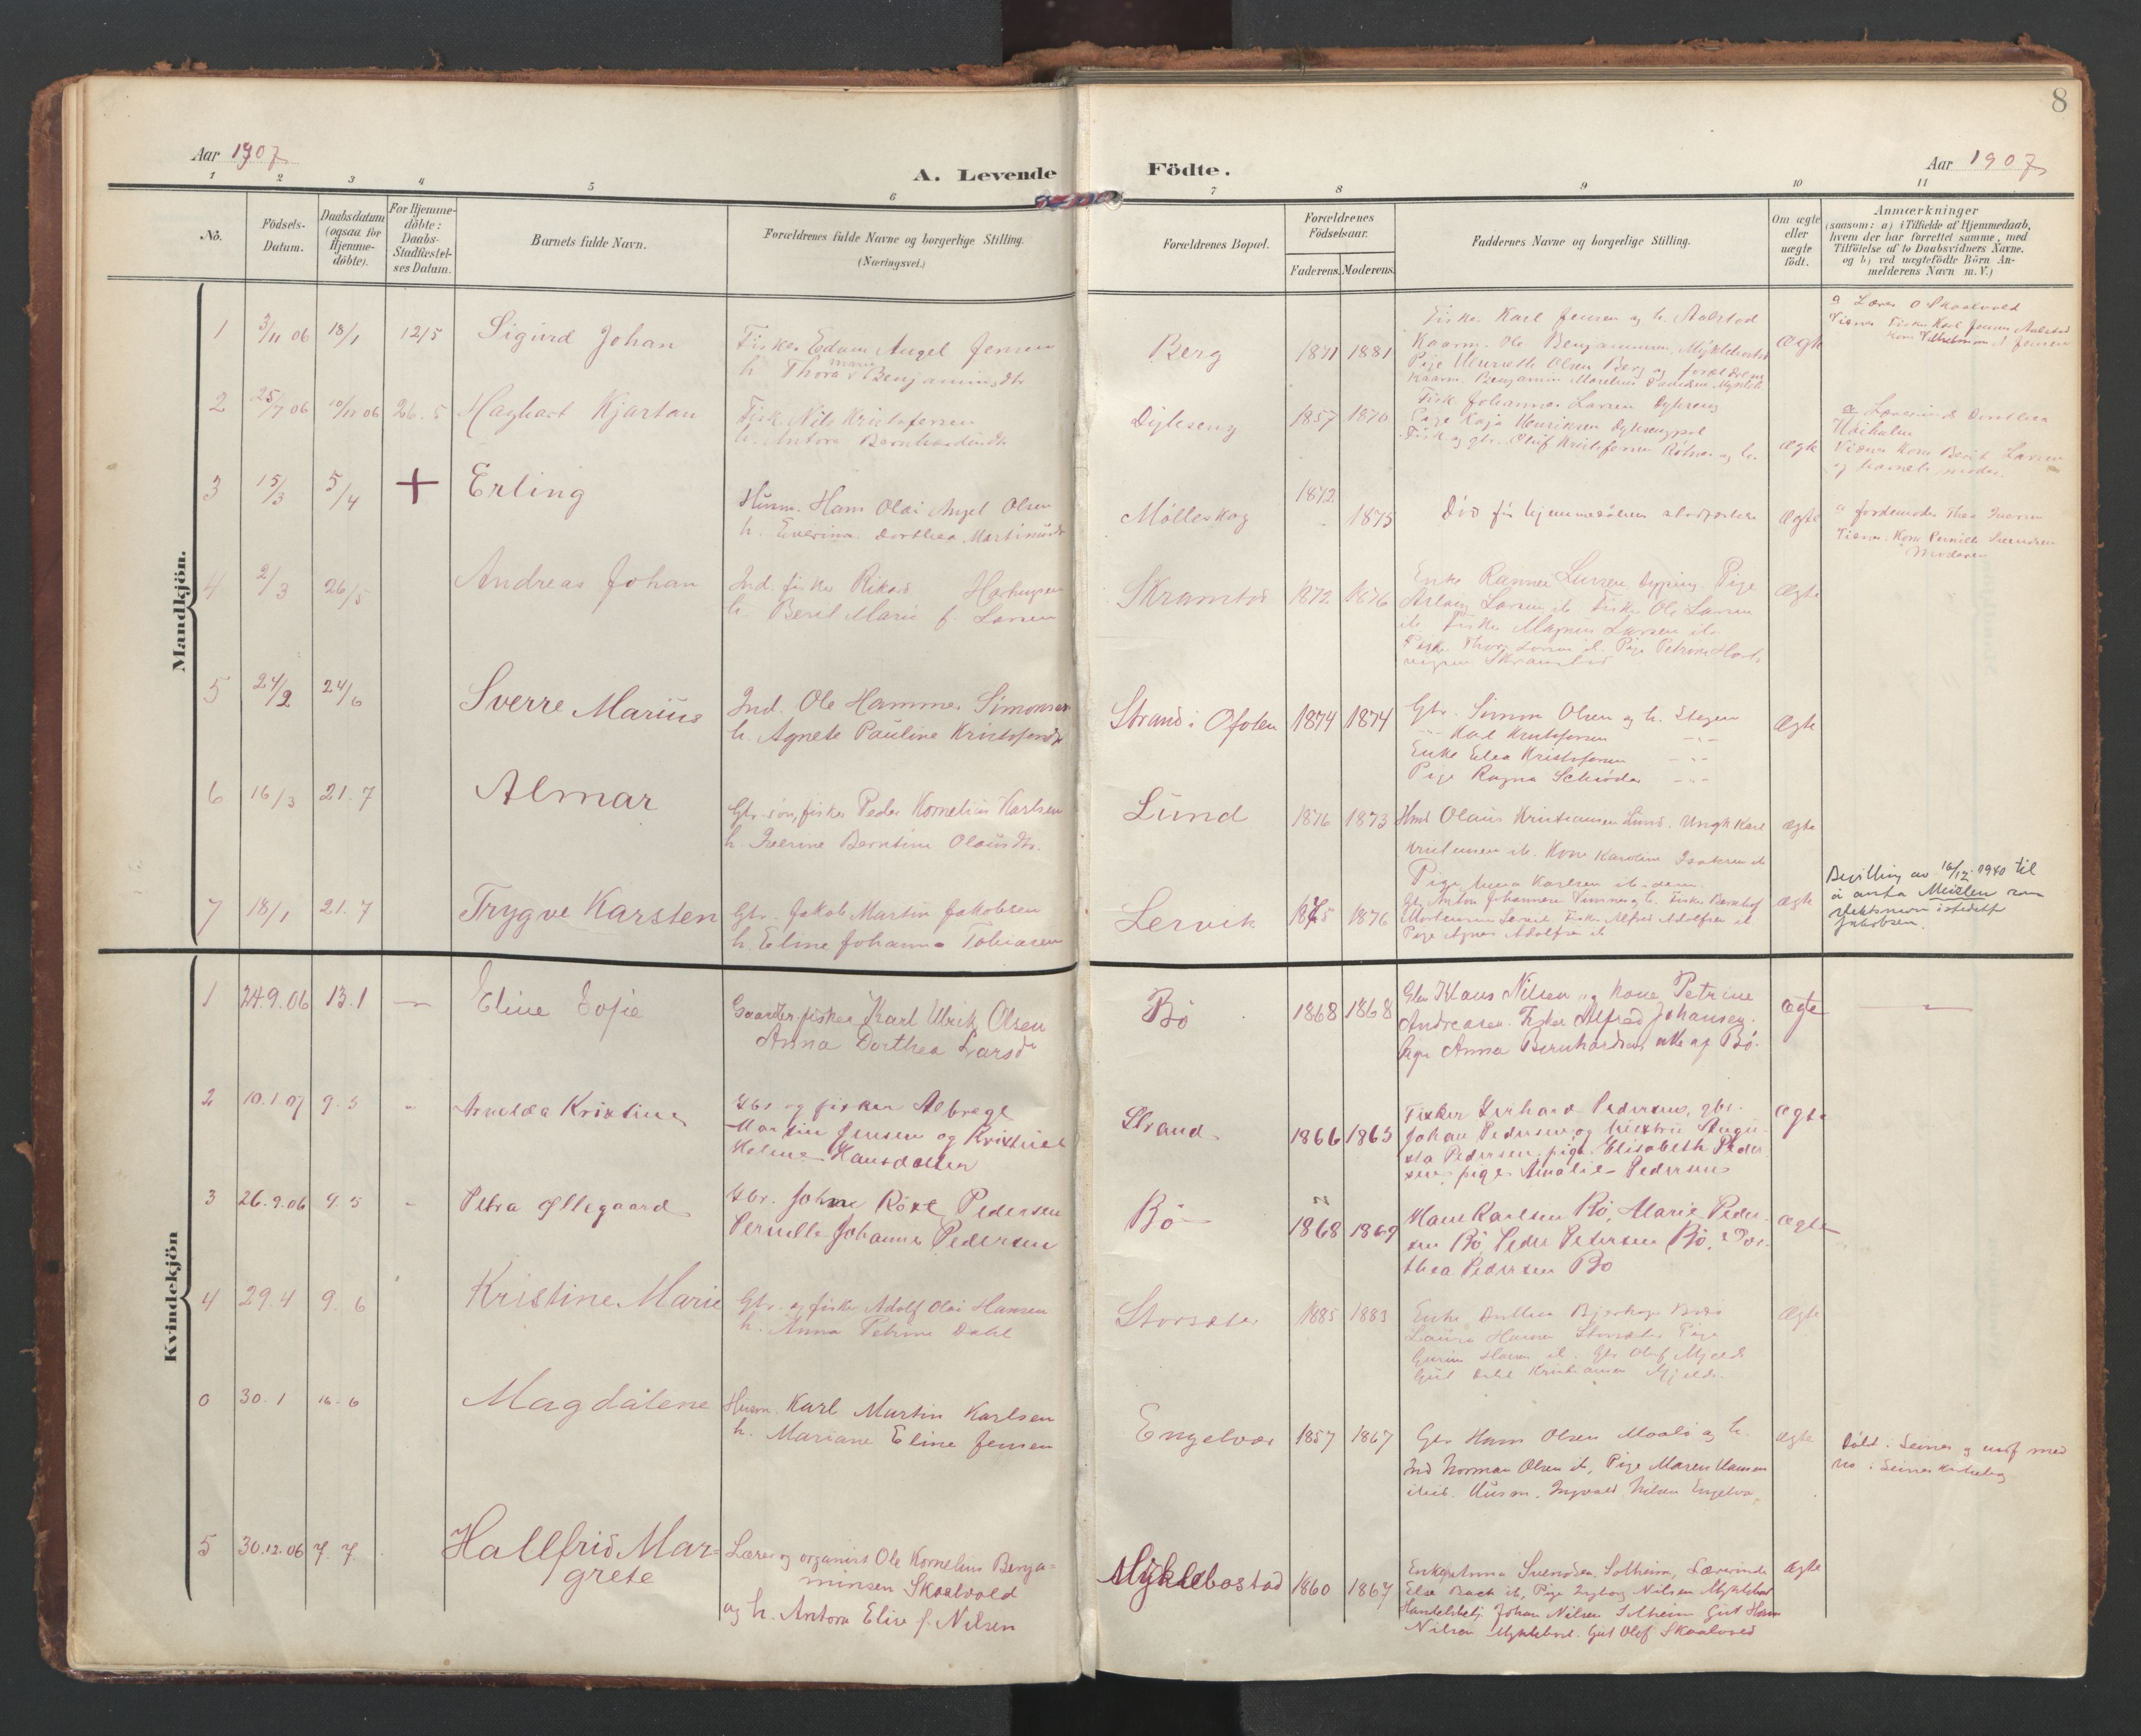 8
Aar 1907
A. Levende Födte.
Aar 1907
1 2 3 4 5 6 7 8 9 10 11
No.
Födsels-
Datum.
Daabsdatum
(ogsaa for
Hjemme-
döbte).
For Hjemme-
döbte:
Daabs-
Stadfæstel-
ses Datum.
Barnets fulde Navn.
Forældrenes fulde Navne og borgerlige Stilling.
(Næringsvei.)
Forældrenes Bopæl.
Forældrenes
Födselsaar.
Faderens. Moderens.
Faddernes Navne og borgerlige Stilling.
Om ægte
eller
uægte
födt.
Anmærkninger
(saasom: a) i Tilfælde af Hjemmedaab,
hvem der har forrettet samme, med
Tilföielse af to Daabsvidners Navne.
og b) ved uægtefödte Börn An-
melderens Navn m. V.)
Mandkjön.
1 3/11 06 18/1 12/5 Sigurd Johan
Fisker Edvin Angel Jensen
h. Thora Marie Benjaminsdtr
Berg 1871 1881
Fisker Karl Jensen og h. Aalstad
Kaarm. Ole Benjaminsen, Myklebostad
Pige Henrieth Olsen Berg og forældrene
Kaarm. Benjamin
Ægte
a Lærer O Skaalvold
Fisker Karl Jensen Aalstad
Kone Vilhelmine Jensen
2 25/7 06 10/11 06 26.5 Haghart Kjartan
Fisk. Nils Kristofersen
h. Antora Bernhardindtr
Dypeseng 1857 1870
Fisk. Johannes Larsen Dypeseng
Pige Kaja Henriksen
Fisk og gbr. Oluf Kristofersen og h.
Ægte
a Dorthea
Kone Berit Larsen
og barnets moder.
3 15/3 5/4 + Erling
Husm. Hans Olai Angel Olsen
h. Everina Dorthea Martinusdtr
Mölleskog 1872 1875
Död för hjemmedaaben
Ægte
a Jordemoder Thea Iversen
Kone Pernille Svendsen
Moderen
4 2/3 26/5 Andreas Johan
Ind. fisker Rikard Hartvigsen
h. Berit Marie f. Larsen
Skramstad 1872 1876
Enke Larsen Pige
Aslaug Larsen ib. Fisker Ole Larsen
ib. Fisker Magnus Larsen ib.
Fisker Larsen ib. Pige Petrine Hart-
vigsen Skramstad
Ægte
5 24/2 24/6 Sverre Marius
Ind. Ole Hammer Simonsen
h. Agnete Pauline Kristofersdtr
Strand i Ofoten 1874 1874
Gbr. Simon Olsen og h. Stegen
Karl Kristofersen -"-
Enke Elea Kristofersen -"-
Pige Ragna Schröder -"-
Ægte
6 16/3 21.7 Almar
Gbr.sön, fisker Peder Kornelius Karlsen
h. Iverine Berntine Olausdtr.
Lund 1876 1873
Olaus Kristiansen Lund. Ungk Karl
ib. Kone Karoline Isaksen ib
Pige Anna Karlsen ib.
Ægte
7 18/1 21.7 Trygve Karsten
Gbr. Jakob Martin Jakobsen
h. Eline Johanna Tobiasen
Lervik 1875 1876
Gbr. Anton Johannesen og h. Fisker Bernhof
Mortensen Lervik, Fisker Alfred Adolfsen ib
Pige Agnes Adolfsen ib
Ægte
Bevilling av 16/12 1940 til
å anta Meislen som
slektsnavn istedetfor
Jakobsen.
Kvindekjön
1 24.9.06 13.1 — Eline Sofie
Gaardbr. fisker Karl Ulrik Olsen
Anna Dorthea Larsdr
Bö 1868 1868
Gbr Klaus Nilsen og kone Petrine
Andreasen. Fisker Alfred Johansen.
Pige Anna Bernhardsen, alle af Bö.
ægte —
2 10.1.07 9.5 - Arnolda Kristine
Gbr og fisker Albregt
Martin Jensen og Kristine
Helene Hansdatter
Strand. 1866 1863
Fisker Gerhard Pedersen, gbr.
Johan Pedersen og hustru Augu-
sta Pedersen, pige Elisabeth Peder-
sen, pige Amalie Pedersen
ægte
3 26.9.06 9.5 - Petra Ollegaard
Gbr. John Röst Pedersen
Pernille Johanna Pedersen
Bö 1868 1869
Hans Karlsen Bö, Marie Peder-
sen Bö, Peder Pedersen Bö, Dor-
thea Pedersen Bö
ægte
4 29.4 9.6 Kristine Marie
Gbr. og fisker Adolf Olai Hansen
h. Anna Petrine Dahl
Storsæter 1885 1883
Enke
Laura Hansen Storsæter Pige
Hansen ib. Gbr Oluf Mjelde
Gut Kristiansen Mjelde.
Ægte
0 30.1 16-6 Magdalene
Husm. Karl Martin Karlsen
h. Mariane Eline Jensen
Engelvær 1857 1867
Gbr Hans Olsen Maalö og h.
Ind Norman Olsen ib, Pige Maren Hansen
ibid. Husm. Ingvald Nilsen Engelvær
ægte
Döbt i Seines og med
no i Seines
5 30.12.06 7.7. Hallfrid Mar-
grete
Lærer og organist Ole Kornelius Benja-
minsen Skaalvold
og h. Antora Elise f. Nilsen
Myklebostad 1860 1867
Enkefr Anna Svendsen Solheim, Lærerinde
Else Bach ib, Pige Ingborg Nilsen Myklebost
Handelsbetj. Johan Nilsen Solheim Gut Hans
Nilsen Myklebost. Gut Olof Skaalvold
ægte